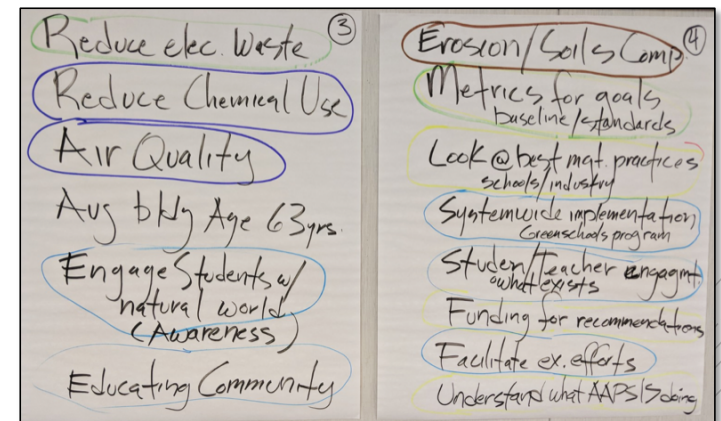 Reduce elec. Waste
3
Reduce Chemical Use
Air Quality
Avg bldg Age 63yrs.
Engage Students w/
natural world
(Awareness)
Educating Community
Erosion/Soils Comp.
4
Metrics for goals
baseline/standards
Look @ best mgt. practices
schools/industry
Systemwide implementation
Greenschools program
Studen/Teacher engagmt.
what exists
Funding for recommendations
Facilitate ex. efforts
Understand what AAPS IS doing